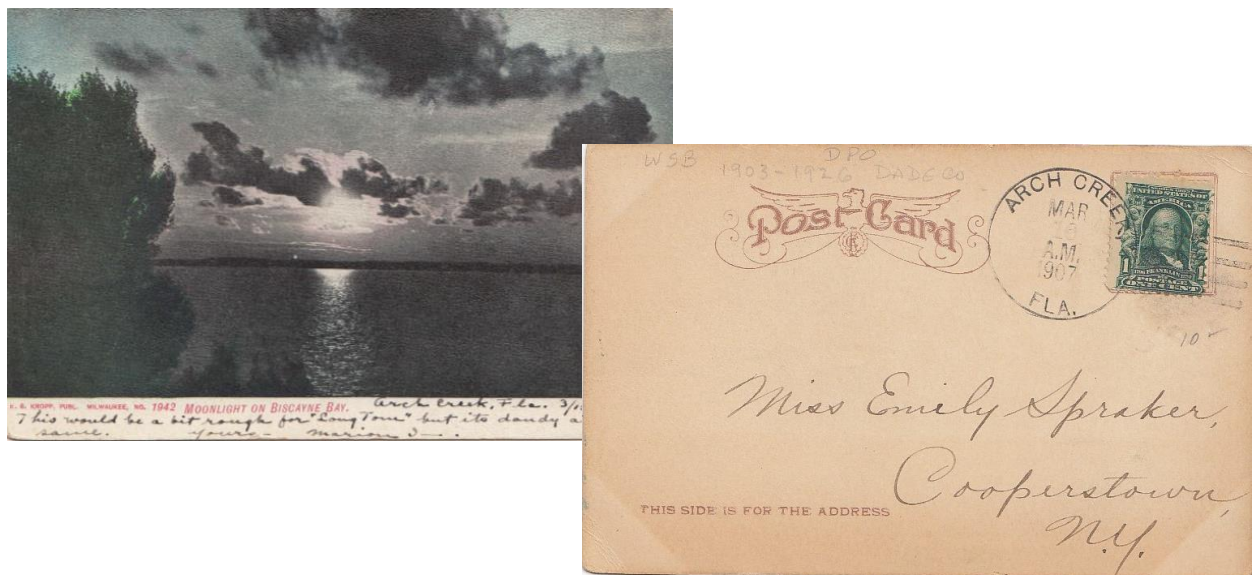 E. C. KROPP, PUBL. MILWAUKEE, NO. 1942 MOONLIGHT ON BISCAYNE BAY. Arch Creek, Fla. 3/
This would be a bit rough for "Long, Tom" but its dandy
same. Yours - Marion
WSB DPO
1903-1926 DADE CO
Post Card
ARCH CREEK
MAR
A.M.
1907
FLA.
UNITED STATES OF
AMERICA
1 1
FRANKLIN
POSTAGE
ONE CENT
10
Miss Emily Spraker,
Cooperstown,
N.Y.
THIS SIDE IS FOR THE ADDRESS